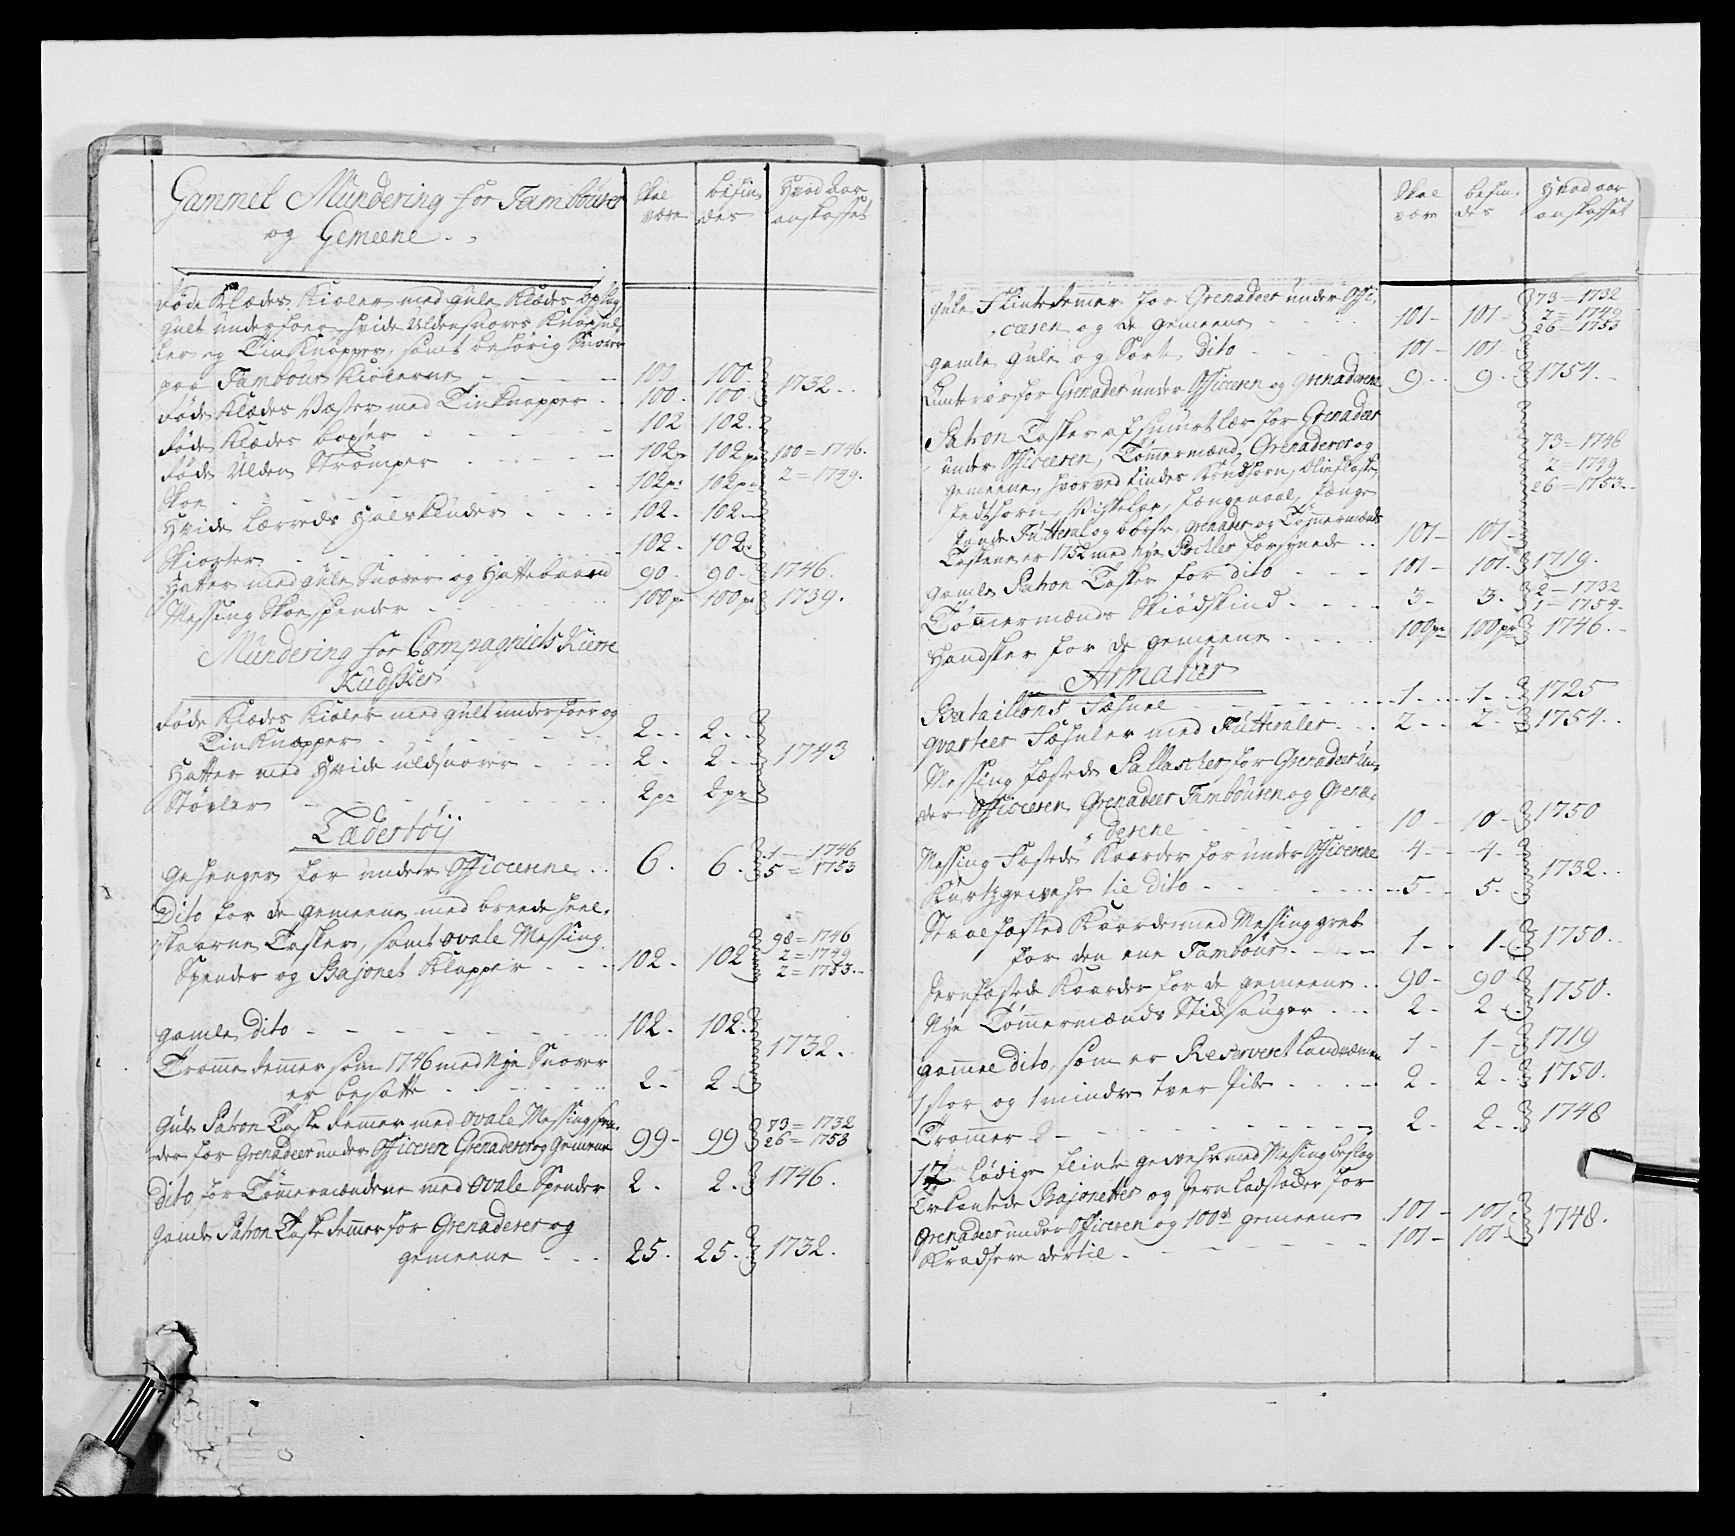 Gammel Mundering for Tambourer
og Gemeene.
Skal være
befin des
Hvad Aar anskaffet
røde Klædes Kioler med gule Klædes opslag
gult underfoer, hvide Uldensnores Knaphul-
ler og Tin Knapper, samt behörig Snorer
paa Tambour Kiolerne - - - 100 100
røde Klædes Væster med Tinknapper - 100. 100. 1732.
røde Klædes boxer - - - 102 102.
røde Ulden Strømper - - - 102pr 102pr 100 = 1746.
Skoe - - - 102pr 102pr 2 = 1749.
Hvide Lærreds Halskluder - - 102. 102
Skiorter - - - 102. 102.
Hatter med gule Snorer og Hattebaand 90. 90. 1746.
Messing Skoespender - - - 100pr 100pr 1739.
Mundering for Compagniets Kierre
Kudsker
røde Klædes Kioler med gult underfoer og
Tin Knapper - - - 2. 2.
Hatter med Hvide uldsnorer - - 2. 2. 1743
Støvler - - - 2pr 2pr
Lædertöij
Gehenger for under Officererne - 6. 6. 1 = 1746
5 = 1753
Dito for de gemeene med breede heel-
skaarne Tasker, samt ovale Messing
Spender og Bajonet Klapper - - 102. 102 98 = 1746
2 = 1749
2 = 1753.
gamle Dito - - - 102. 102.
Tromme remmer som 1746 med Nye Snorer 1732.
er besatte - - - 2. 2.
Gule Patron Taske remmer med ovale Messing spen-
der for Grenadeer under Officeren Grenaderer og Gemeene 99 - 99 73 = 1732
26 = 1753
Dito for Tömmermændene med ovale Spender 2. 2. 1746.
Gamle Patron Taske remmer for Grenaderer og
gemeene - - 25. 25. 1732.
Skal være
befin- des
Hvad aar anskaffet
Gule Flinteremmer for Grenadeer under Offi-
ceeren og de gemeene - - 101 - 101 73 = 1732
2 = 1749
26 = 1753
gamle gule og Sort Dito - - 101 - 101
Lunterör for Grenadeer under Officeren og grenaderene 9 9. 1754.
Patron Tasker af smurt lær for Grenadeer
under Officeren, Tömmermænd, Grenaderer og
gemeene, hvorved findes Krudhorn, Olieflaske,
fedthorn, fængenaal, fænge
Futteral og börste, grenadeer og Tömmermænds
Taskene er 1752 med nye forsynede - 101 - 101 - 73 = 1746
2 = 1749
26 = 1753.
gamle Patron Tasker for dito - - 101 - 101. 1719.
Tömmermænds Skiödskind - - 3 - 3. 2 = 1732
1 = 1754
Handsker for de gemeene - - 100pr 100pr 1746.
Armatur
Bataillons Fahne - - - 1 1 1725
qvarteer Fahner med Futteraler - - 2 2. 1754.
Messing fæstede Pallascher for Grenadeer un-
der Officeren Grenadeer Tambouren og Grena-
derene - - - 10 10 - 1750
Messing Fæstede Kaarder for under Officererne 4 - 4. 1732.
Kurtzgevehr til Dito - - - 5 - 5.
Staalfæsted Kaarde med Messing greb
for den ene Tambour - - - 1 - 1 - 1750.
Jernfæstede Kaarder for de gemeene - 90 - 90 1750.
Nye Tömmermænds Stik sauger - - 2. 2
gamle dito, som er Reserveret landværnen 1 - 1 1719
1 stor og 1 mindre tver Pibe - - 2. 2. 1750.
Trommer - - - 2. 2 1748
17 lödige flinte gevehr med Messing beslag
Trekantede Bajonetter og Jern ladstoker for
Grenadeer under Officeren og 100de gemeene 101 - 101. 1748.
Kradsere dertil - - - 101 - 101